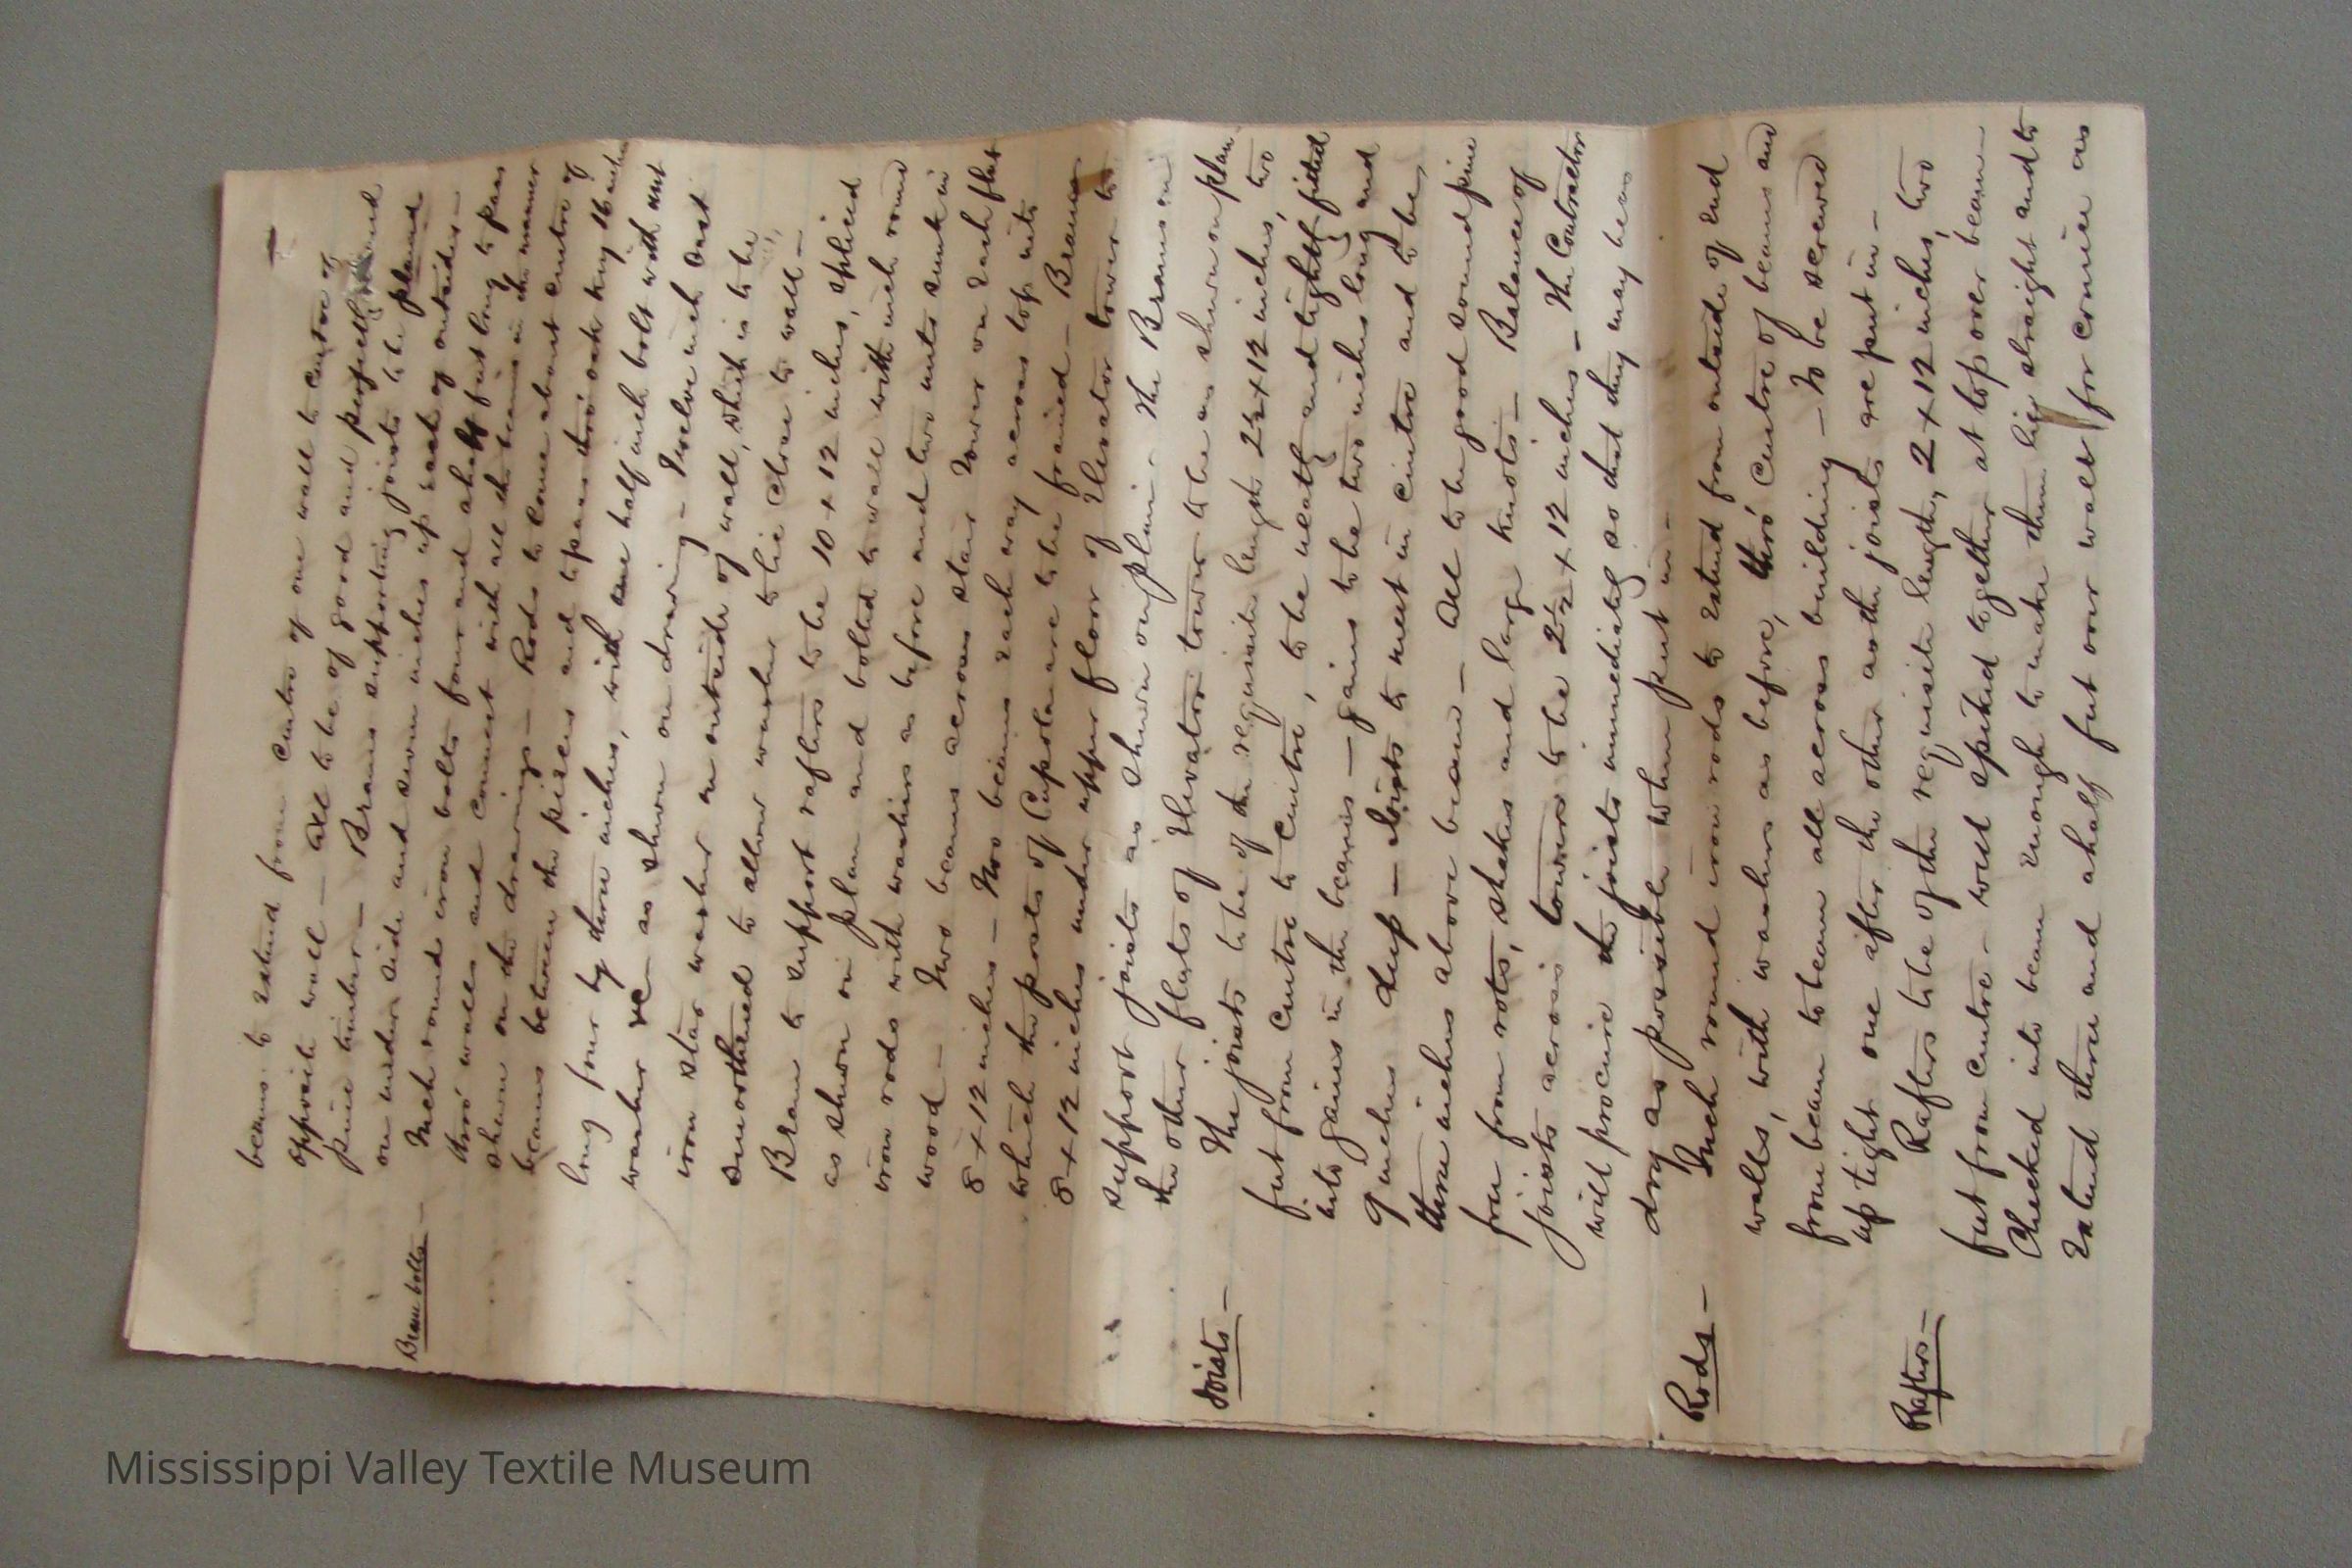 beams to extend from centre of one wall to centre of
opposite wall — all to be of good and perfectly sound
pine timber — Beams supporting joists to be planed
on under side and seven inches up each of outsides —
Beam bolts — Inch round iron bolts four and a half feet long to pass
thro' walls and connect with all the beams in the manner
shown on the drawings — Rods to come about centre of
beams between the pieces and to pass thro' oak key 16 inches
long four by three inches, with one half inch bolt with nut
washer &c — as shown on drawing — Twelve inch cast
iron star washer on outside of wall, which is to be
smoothened to allow washer to lie close to wall —
Beam to support rafters to be 10 x 12 inches, spliced
as shown on plan and bolted to wall with inch round
iron rods with washers as before and two nuts sunk in
wood — Two beams across stair tower on each flat
8 x 12 inches — Two beams each way across top into
which the posts of Cupola are to be framed — Beams
8 x 12 inches under upper floor of Elevator tower to
support joists as shown on plan — The Beams on
the other flats of Elevator tower to be as shown on plan
Joists — The joists to be of the requisite length 2½ x 12 inches, two
feet from centre to centre, to be neatly and tightly fitted
into gains in the beams — gains to be two inches long and
9 inches deep — Joists to meet in centre and to be
three inches above beam — All to be good sound pine
free from rots, shakes and large knots — Balance of
joists across towers to be 2½ x 12 inches — The Contractor
will procure the joists immediately so that they may be as
dry as possible when put in —
Rods — Inch round iron rods to extend from outside of end
walls, with washers as before, thro' centre of beams and
from beam to beam all across building — To be screwed
up tight one after the other as the joists are put in —
Rafters — Rafters to be of the requisite length, 2 x 12 inches, two
feet from centre — well spiked together at top over beam
Checked into beam enough to make them lie straight and to
extend three and a half feet over wall for cornice as
Mississippi Valley Textile Museum